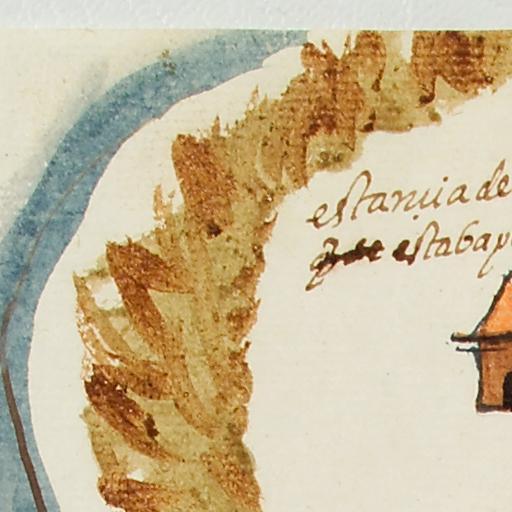 estançia de
que estaba p